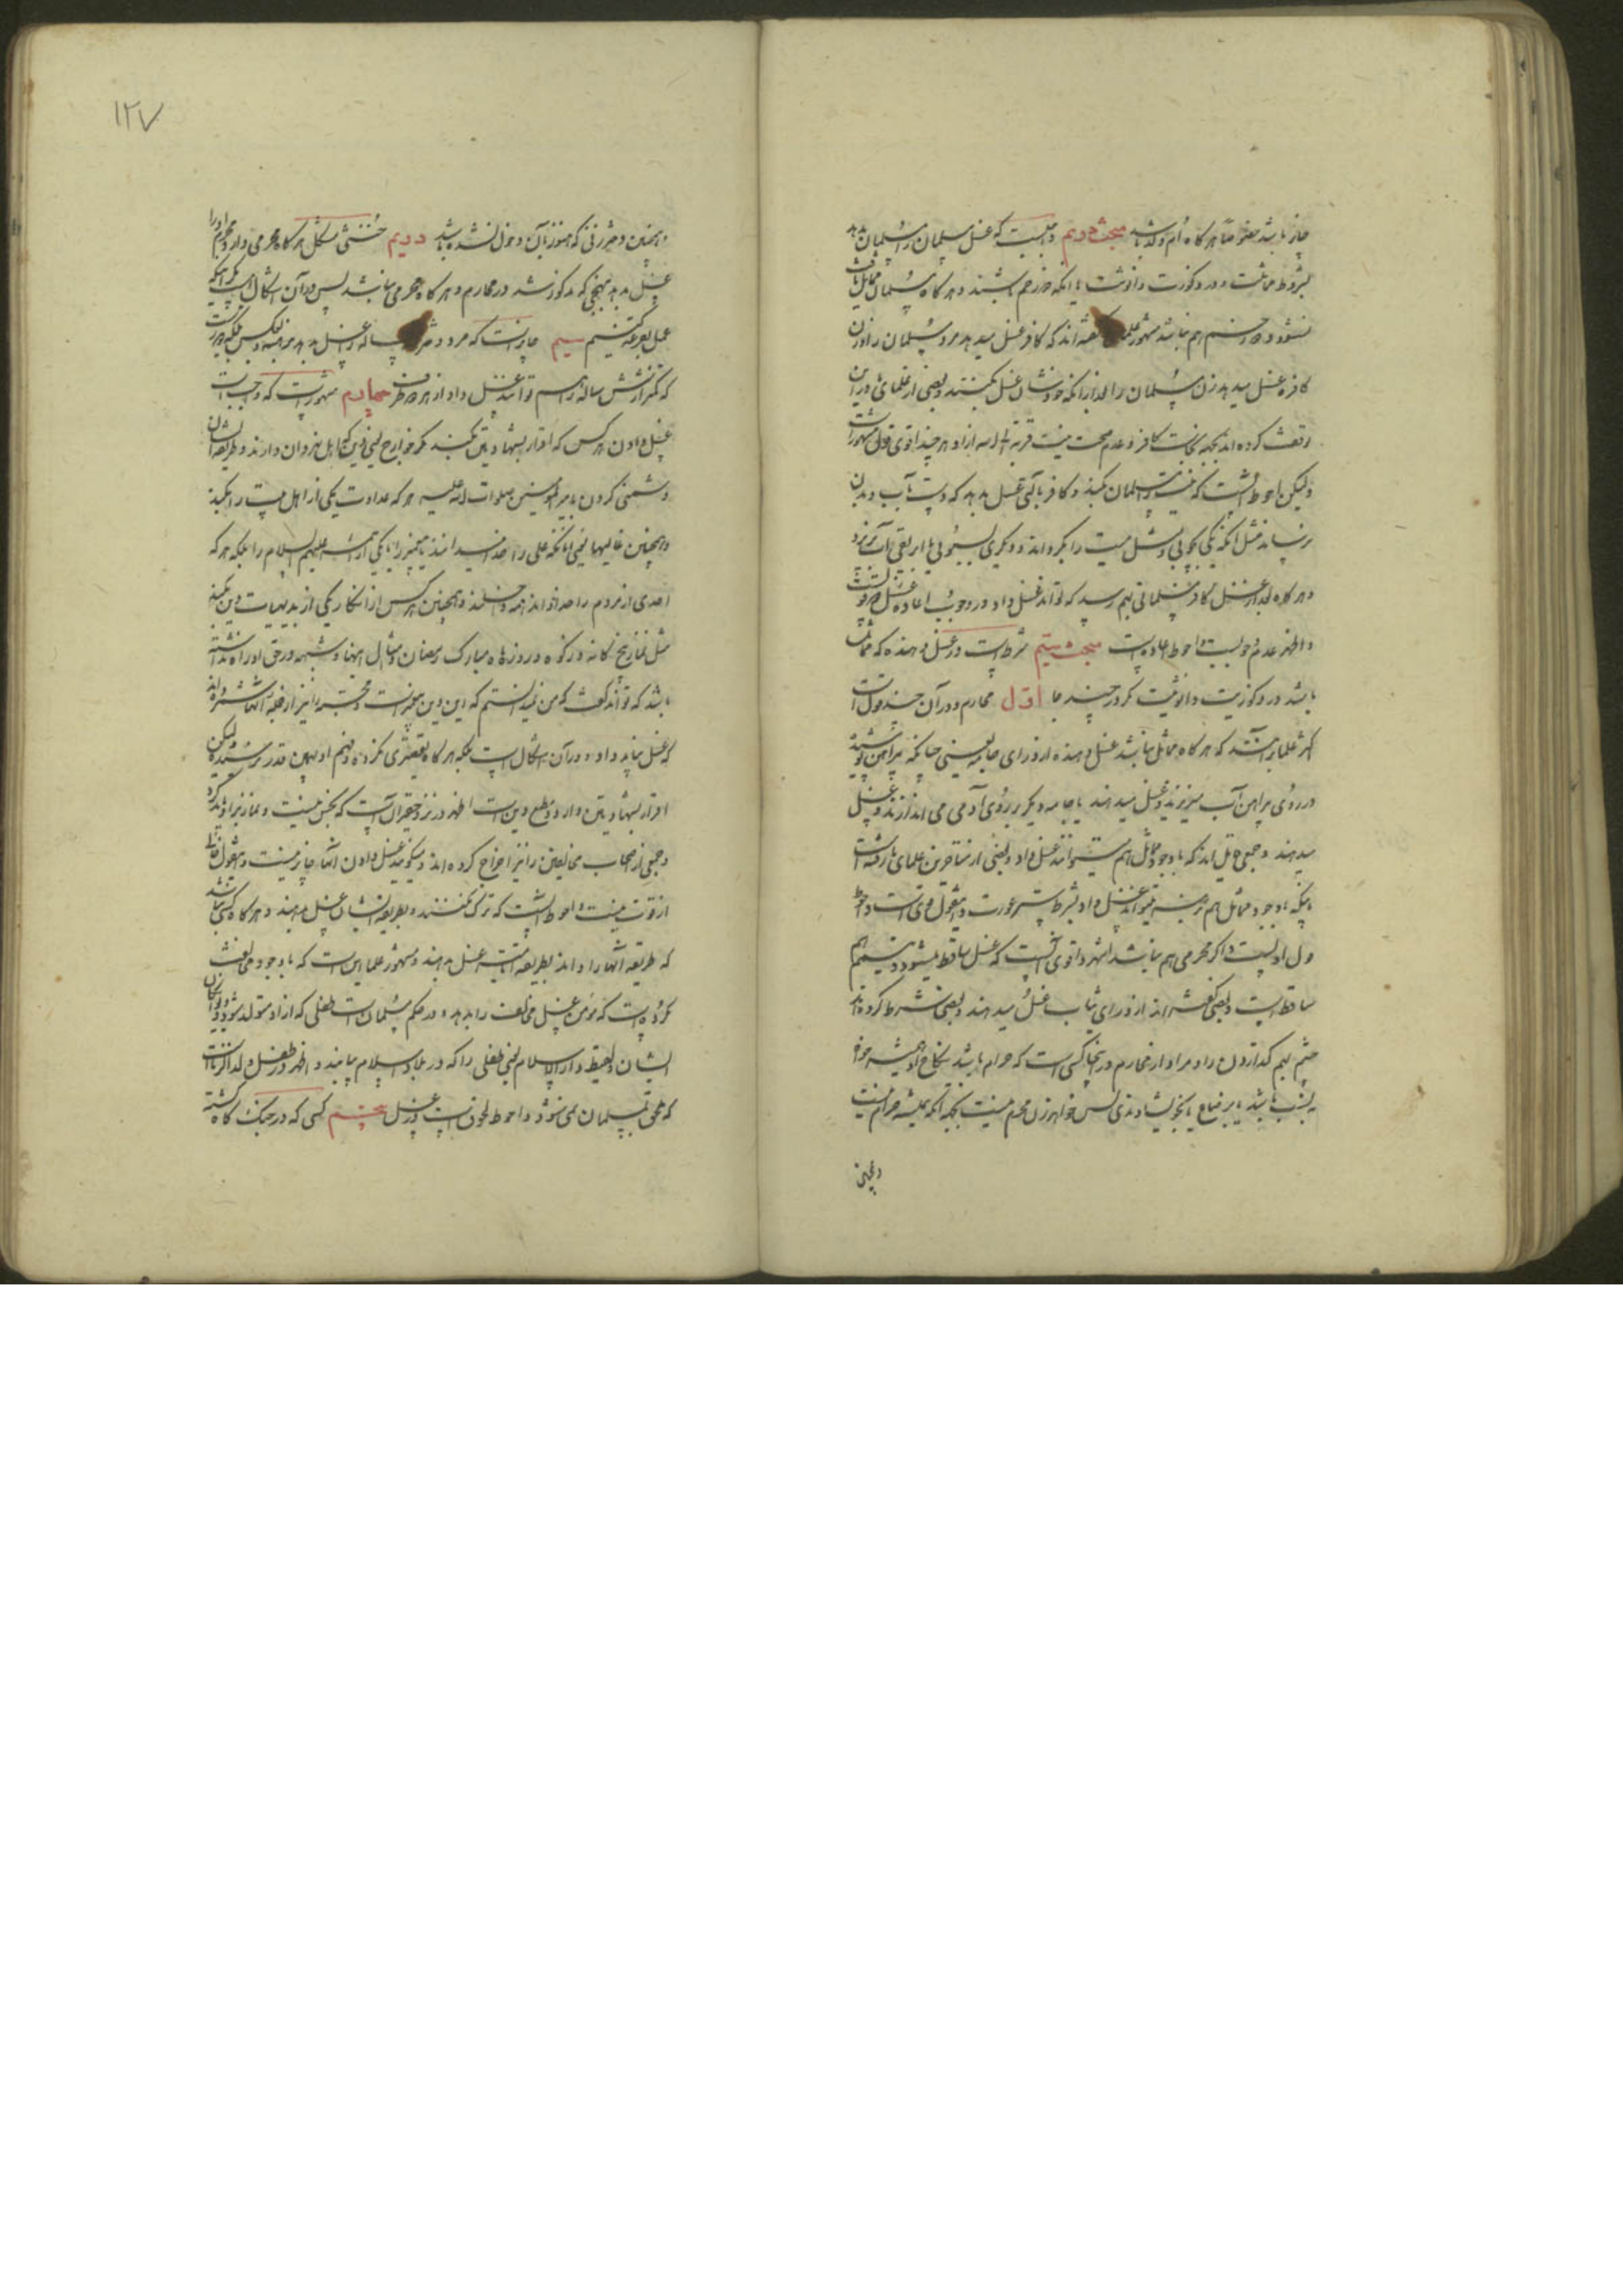 جایز باشد خصوصا هرگاه ام ولد باشد مبحث دویم واجبست که غسل مسلمان را مسلمان بدهد
بشرط مماثلت در ذکوریت و انوثیت یا انکه محرم باشند و هرگاه مسلمان مماثل یافت
نشود و محرم هم نباشد مشهور علما گفته اند که کافر غسل میدهد مرد مسلمان را و زن
کافره غسل میدهد زن مسلمان را بعد از انکه خودشان غسل بکنند و بعضی از علما در این
توقف کرده اند بجهة نجاست کافر و عدم صحت نیت قربة الی الله از او هر چند اقوی قول مشهور است
ولیکن احوط انست که نیت را مسلمان بکند و کافر بآبی غسل بدهد که دست بآب و بدن
نرساند مثل انکه یکی بچوبی و مثل میت را بگرداند و دیگری بسبوئی یا ابریقی آب بریزد
و هرگاه بعد از غسل کافر مسلمانی بهم رسید که تواند غسل داد در وجوب اعاده غسل
و اظهر عدم وجوبست و احوط اعاده است مبحث سیم شرط است در غسل دهنده که مماثل
باشد در ذکوریت و انوثیت مگر در چند جا اول محارم و در آن چند قول است
اکثر علما برآنند که هرگاه مماثل نباشد غسل دهنده از ورای جامه یعنی چنانکه پیراهن پوشیده
در روی پیراهن آب میریزند و غسل میدهند یا جامه دیگر بر روی آدمی می اندازند و غسل
میدهند و جمعی قایل اند که با وجود مماثل هم میتوانند غسل داد و بعضی از متاخرین علما رفته است
باینکه با وجود مماثل هم برهنه میتواند غسل داد بشرط ستر عورت و این قول قوی است و احوط
قول اولست و اگر محرمی هم نباشد اشهر و اقوی آنست که غسل ساقط میشود و تیمم هم
ساقط است و بعضی گفته اند از ورای ثیاب غسل میدهند و بعضی شرط کرده اند
چشم بهم گذاردن را و مراد از محارم در اینجا کسی است که حرام باشد نکاح او همیشه خواه
بنسب باشد یا برضاع یا بخویشاوندی پس خواهر زن محرم نیست بجهة انکه همیشه حرام نیست
و همچنین
۱۲۷
و همچنین دختر زنی که هنوز بآن دخول نشده باشد دویم خنثی مشکل هرگاه محرمی دارد محرم او را
غسل بدهد بنهجی که مذکور شد در محارم و هرگاه محرمی نباشد پس در آن اشکال است مگر اینکه
عمل بقرعه کنیم سیم جایز است که مرد دختر سه ساله را غسل بدهد برهنه و بعکس
که کمتر از شش ساله را هم توانند غسل داد از هر دو طرف چهارم مشهور است که واجب است
غسل دادن هر کس که اقرار بشهادتین بکند مگر خوارج یعنی که اهل نهروان دارند و طریقه ایشان
دشمنی کردن با امیر المؤمنین صلوات الله علیه هر که عداوت یکی از اهل بیت را بکند
و همچنین غالیها یعنی آنانکه علی را خدا میدانند یا پیغمبر را یا یکی از ائمه علیهم السلام را بلکه هر که
احدی از مردم را خدا داند همه داخلند و همچنین هر کس از انکار یکی از بدیهیات دین بکند
مثل نماز پنجگانه و زکوة و روزه ماه مبارک رمضان و مثال اینها و شبهه در حق او راه نداشته
باشد که تواند گفت که من نمیدانستم که این دین پیغمبر است و مجسمه را نیز از جمله آنها شمرده اند
که غسل نباید داد و در آن اشکال است بلکه هرگاه تقصیری نکرده و فهم او بهمین قدر رسیده ولیکن
اقرار بشهادتین دارد و مطیع دین است اظهر در نزد حقیر آن است که نجس نیست و نماز بر او باید کرد
و جمعی از اصحاب مخالفین را نیز اخراج کرده اند و میگویند غسل دادن آنها جایز نیست و این قول خالی
از قوت نیست و احوط انست که ترک نکنند و بطریقه ایشان غسل بدهند و هرگاه کسی نباشد
که طریقه آنها را داند بطریقه امامیه غسل بدهند و مشهور علما این است که با وجود مخالف
مکروه است که مؤمن غسل مخالف را بدهد و در حکم مسلمان است طفلی که از او متولد شود
ایشان و لقیط دار الاسلام یعنی طفلی را که در بلاد اسلام بیابند و اظهر در طفل ولد الزنا انست
که ملحق بمسلمان می شود و احوط لحوق است در غسل پنجم کسی که در جنگ گاه کشته